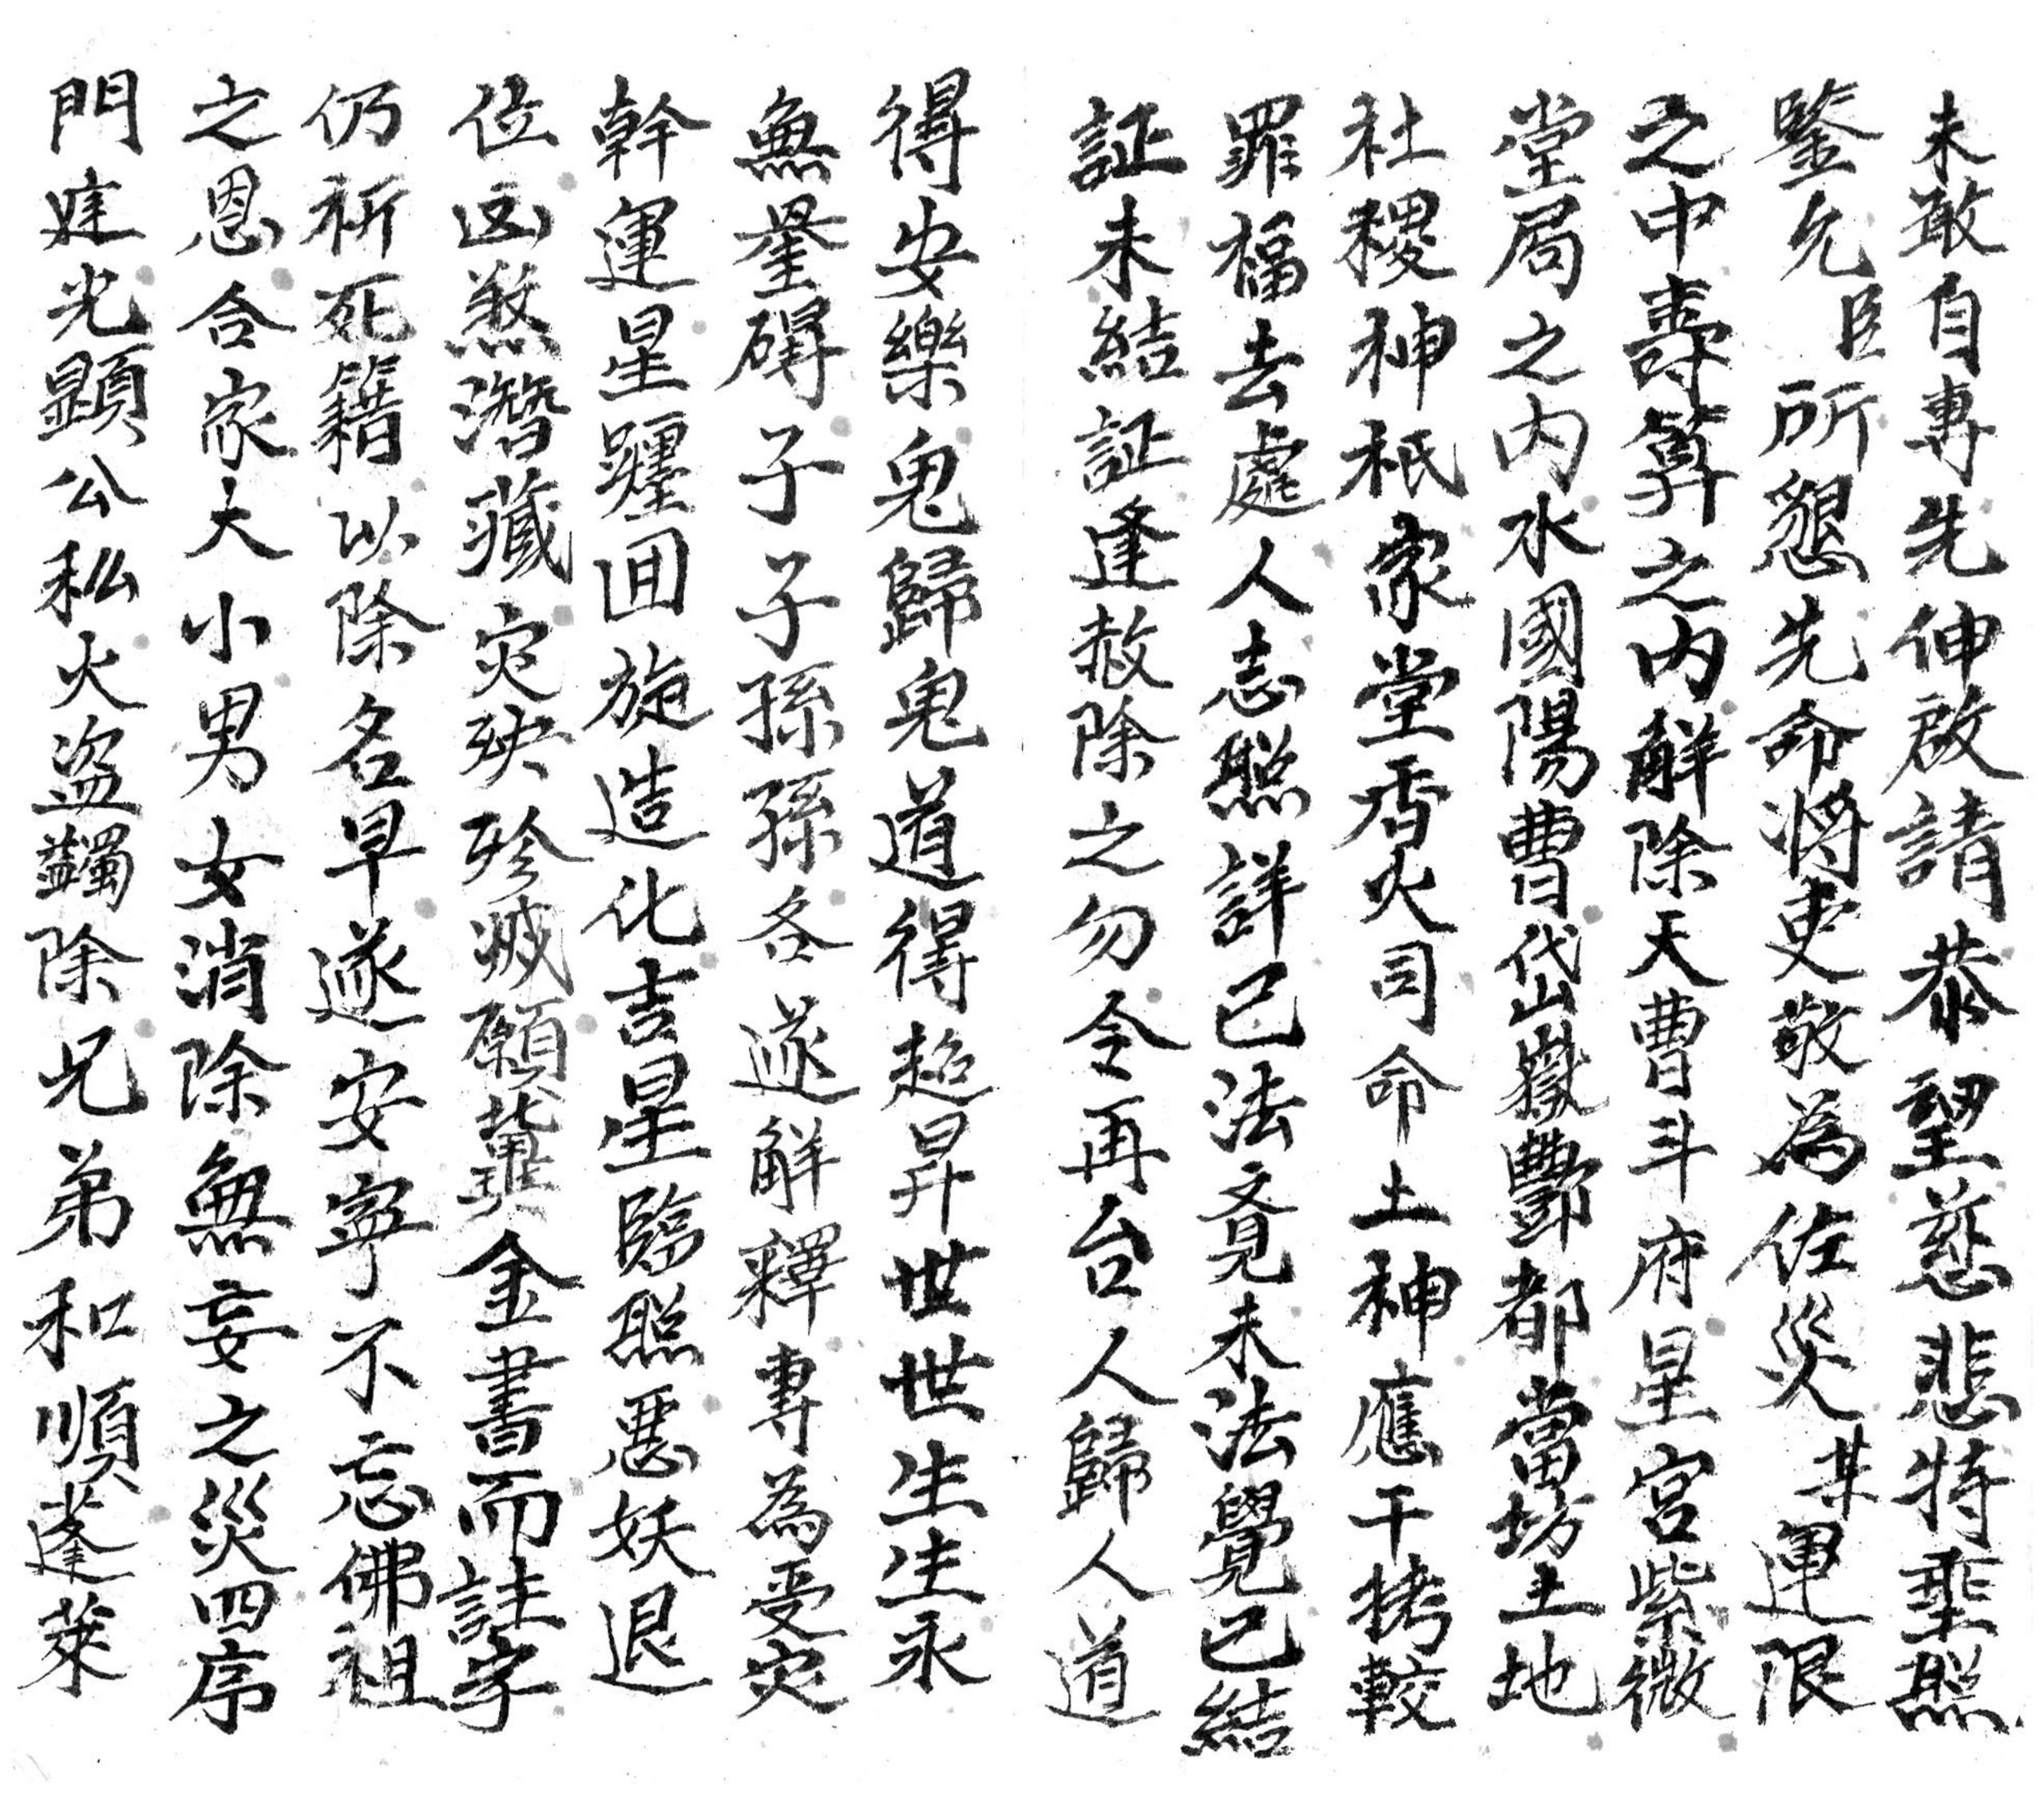 未敢自專先伸啟請恭望慈悲特垂照
鑒允臣所懇先命將吏敬為佐災某運限
之中壽算之内解除天曹斗府星宮紫微
堂局之内水國陽曹岱嶽酆都當坊土地
社稷神祇家堂香火司命土神應干拷較
罪福去處人志照詳已法覔未法覺已結
証未結証逢赦除之勿令再台人歸人道
得安樂鬼歸鬼道得超昇世世生生永
無罣碍子子孫孫各遂解釋專為受灾
幹運星躔囬旋造化吉星臨照惡妖退
位凶煞潛藏灾殃殄滅願冀金書而註字
仍祈死籍以除名早遂安寧不忘佛祖
之恩合家大小男女消除無妄之災四序
門庭光顕公私火盗蠲除兄弟和順蓬萊